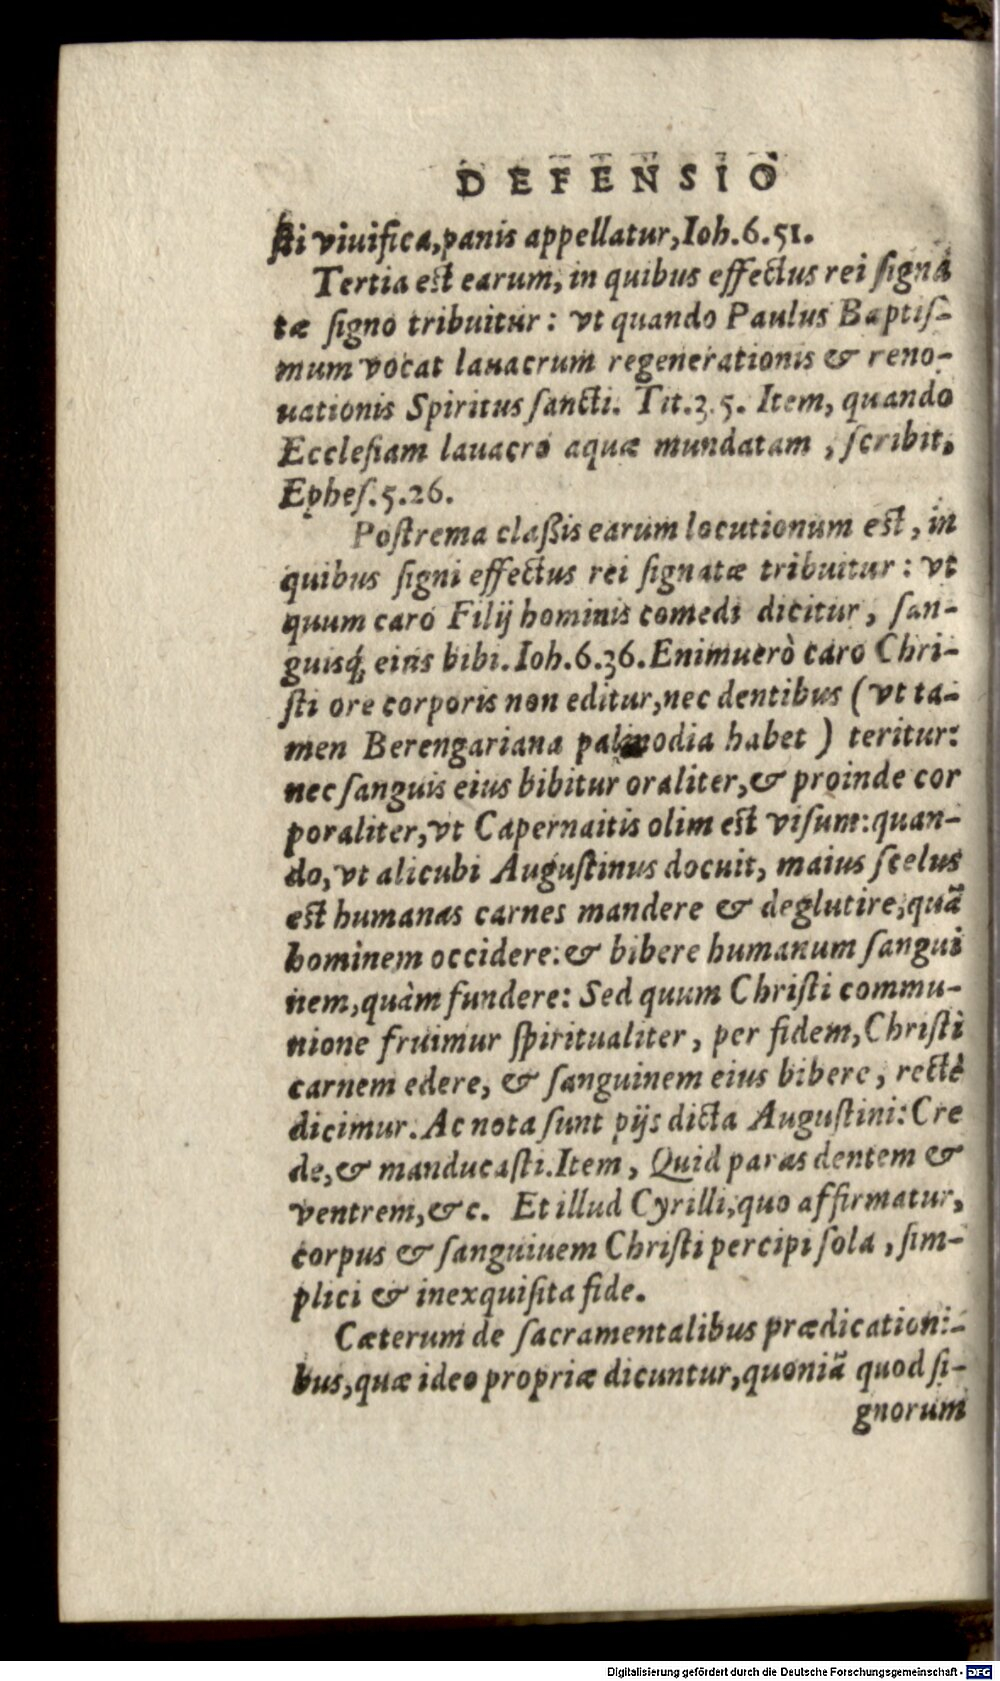 DEFENSIO
ſti viuifica, panis appellatur, Ioh. 6. 51.
Tertia est earum, in quibus effectus rei ſigna
tæ ſigno tribuitur: vt quando Paulus Baptiſ-
mum vocat lauacrum regenerationis & reno-
uationis Spiritus ſancti. Tit. 3. 5. Item, quando
Eccleſiam lauacro aquæ mundatam, ſcribit,
Epheſ. 5. 26.
Poſtrema claßis earum locutionum est, in
quibus ſigni effectus rei ſignatæ tribuitur: vt
quum caro Filij hominis comedi dicitur, ſan-
guisq́; eius bibi. Ioh. 6. 36. Enimuerò caro Chri-
ſti ore corporis non editur, nec dentibus (vt ta-
men Berengariana palinodia habet) teritur:
nec ſanguis eius bibitur oraliter, & proinde cor
poraliter, vt Capernaitis olim est viſum: quan-
do, vt alicubi Auguſtinus docuit, maius ſcelus
est humanas carnes mandere & deglutire, quā
hominem occidere: & bibere humanum ſangui
nem, quàm fundere: Sed quum Chriſti commu-
nione fruimur ſpiritualiter, per fidem, Chriſti
carnem edere, & ſanguinem eius bibere, rectè
dicimur. Ac nota ſunt pijs dicta Auguſtini: Cre
de, & manducaſti. Item, Quid paras dentem &
ventrem, &c. Et illud Cyrilli, quo affirmatur,
corpus & ſanguiuem Chriſti percipi ſola, ſim-
plici & inexquiſita fide.
Cæterum de ſacramentalibus prædicationi-
bus, quæ ideo propriæ dicuntur, quoniā quod ſi-
gnorum
Digitalisierung gefördert durch die Deutsche Forschungsgemeinschaft - DFG